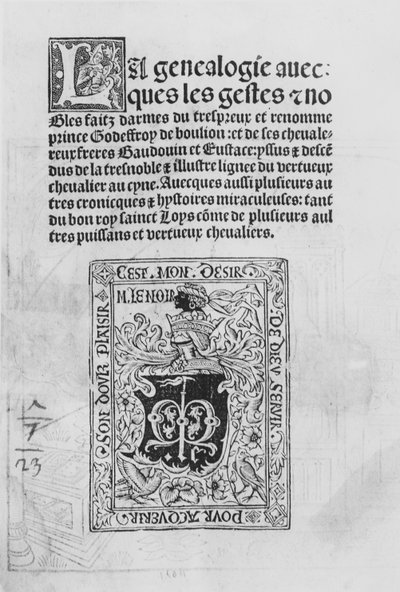 LA genealogie auec⸗
ques les gestes ⁊ no
bles faitz darmes du trespreux et renomme
prince Godeffroy de boulion: et de ses cheuale⸗
reux freres Baudouin et Eustace: yssus & descē
dus de la tresnoble & illustre lignee du vertueux
cheualier au cyne. Auecques aussi plusieurs au
tres cronicques & hystoires miraculeuses: tant
du bon roy sainct Loys cōme de plusieurs aul
tres puissans et vertueux cheualiers.
C'EST. MON. DESIR
DE. DIEV. SERVIR.
POVR. ACQVERIR
SON. DOVX. PLAISIR
M. LENOIR
7
23